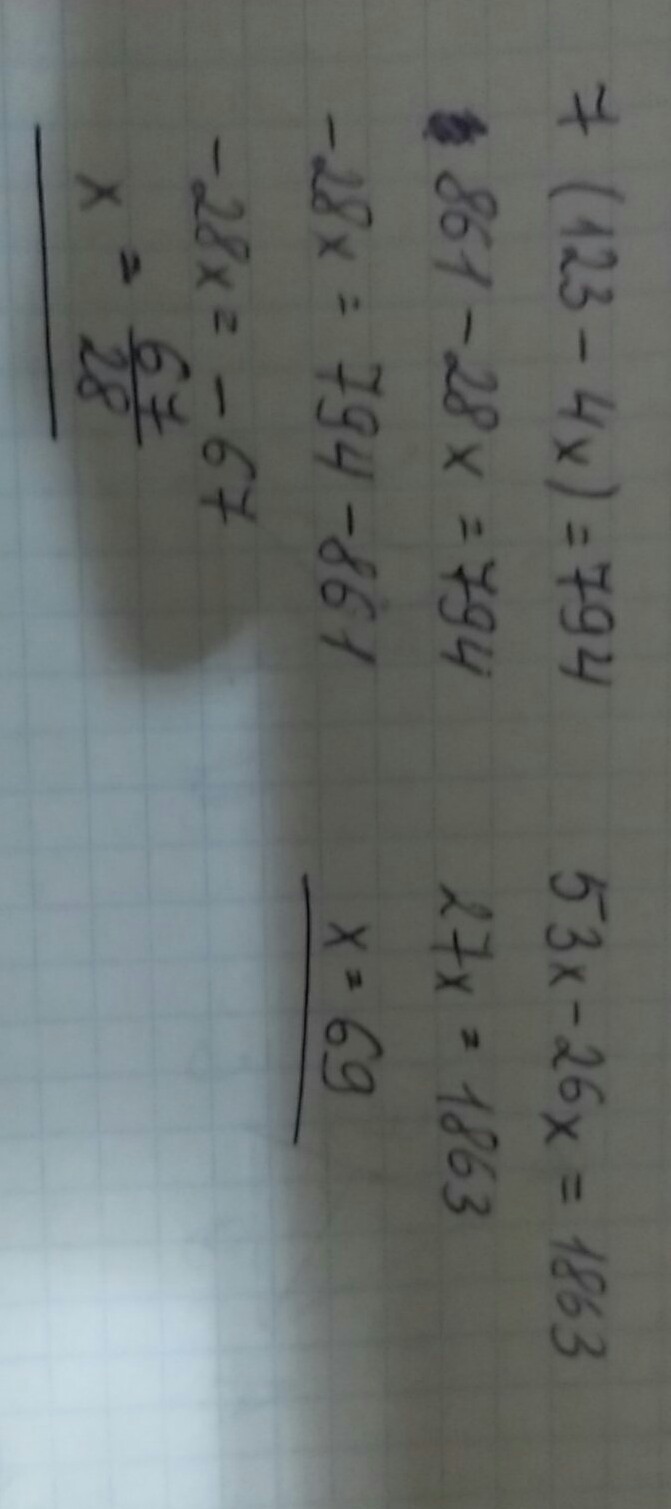 7 (123 - 4x) = 794
861 - 28x = 794
-28x = 794 - 861
-28x = - 67
x = 67/28
53x - 26x = 1863
27x = 1863
x = 69